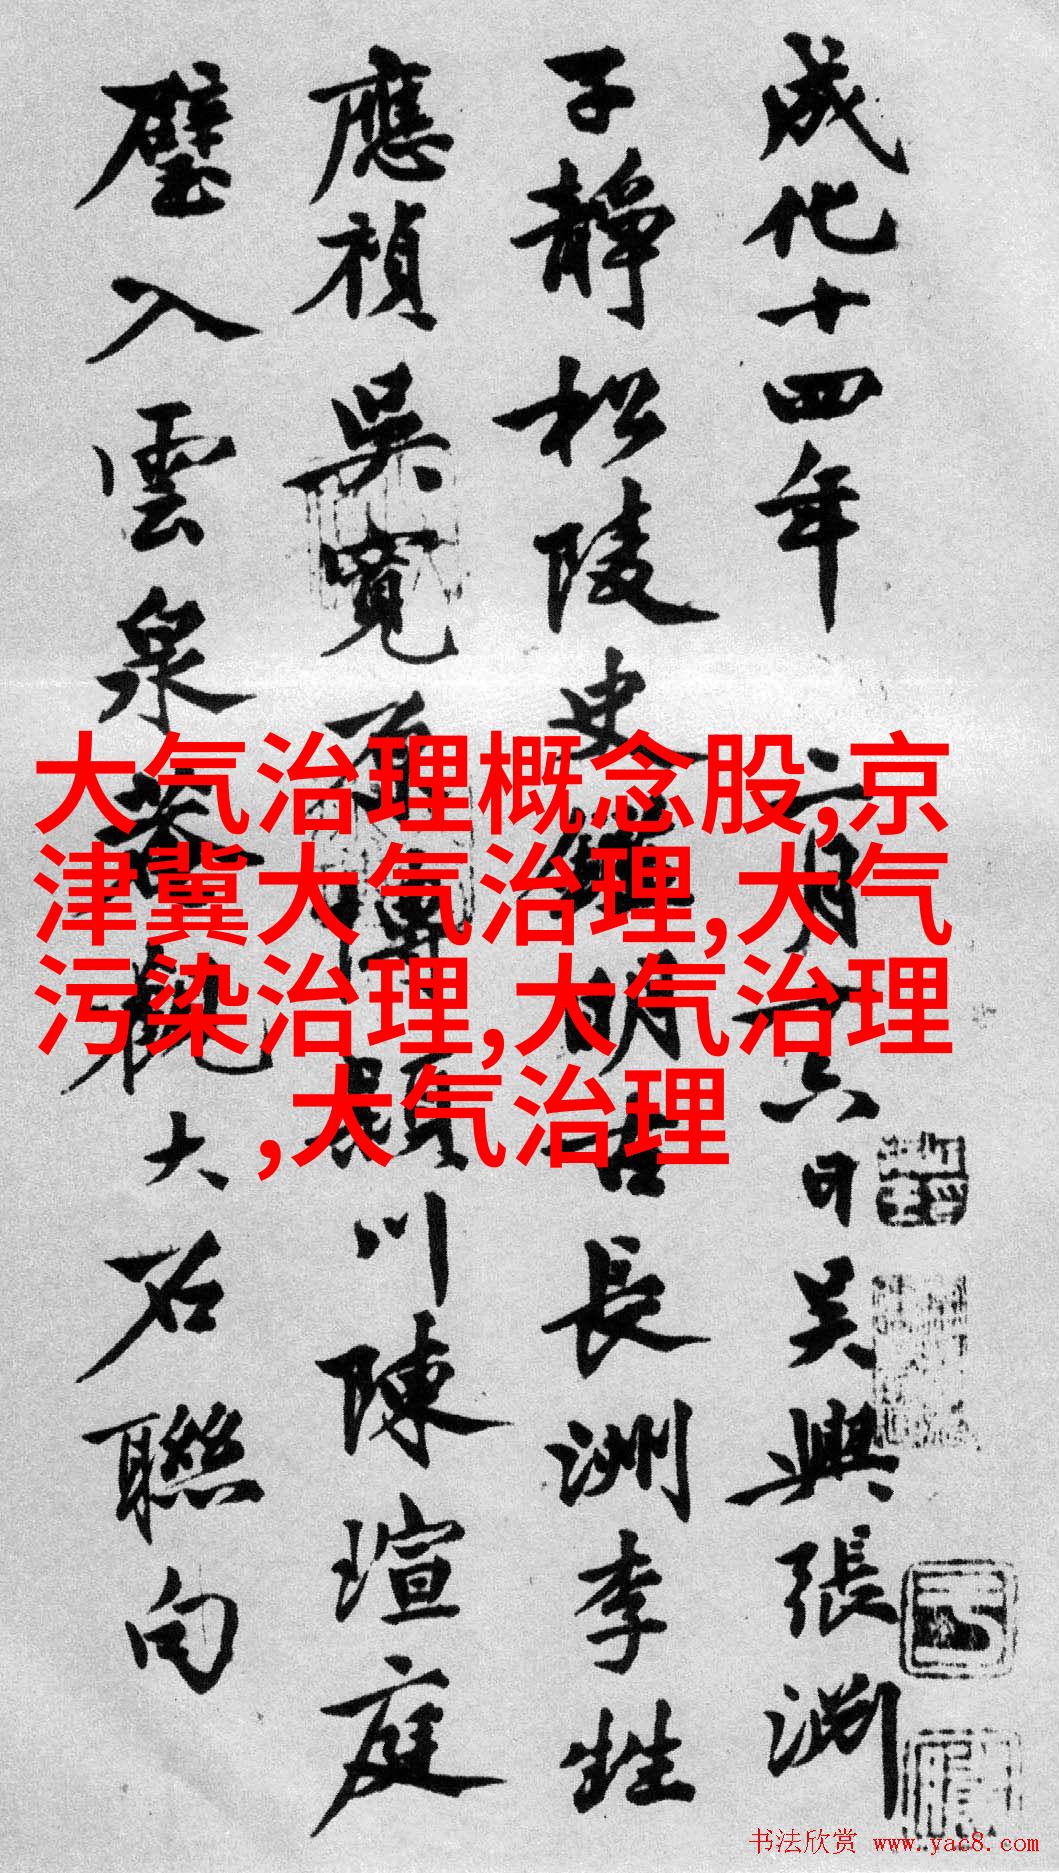 成化十四年二月十六日吳興張淵
子靜松陵史鑑明古長洲李甡
應禎吳寬原博潁川陳瑄庭
璧入雲泉菴觀大石聯句
大气治理概念股,京
津冀大气治理,大气
污染治理,大气治理
,大气治理
书法欣赏 www.yac8.com